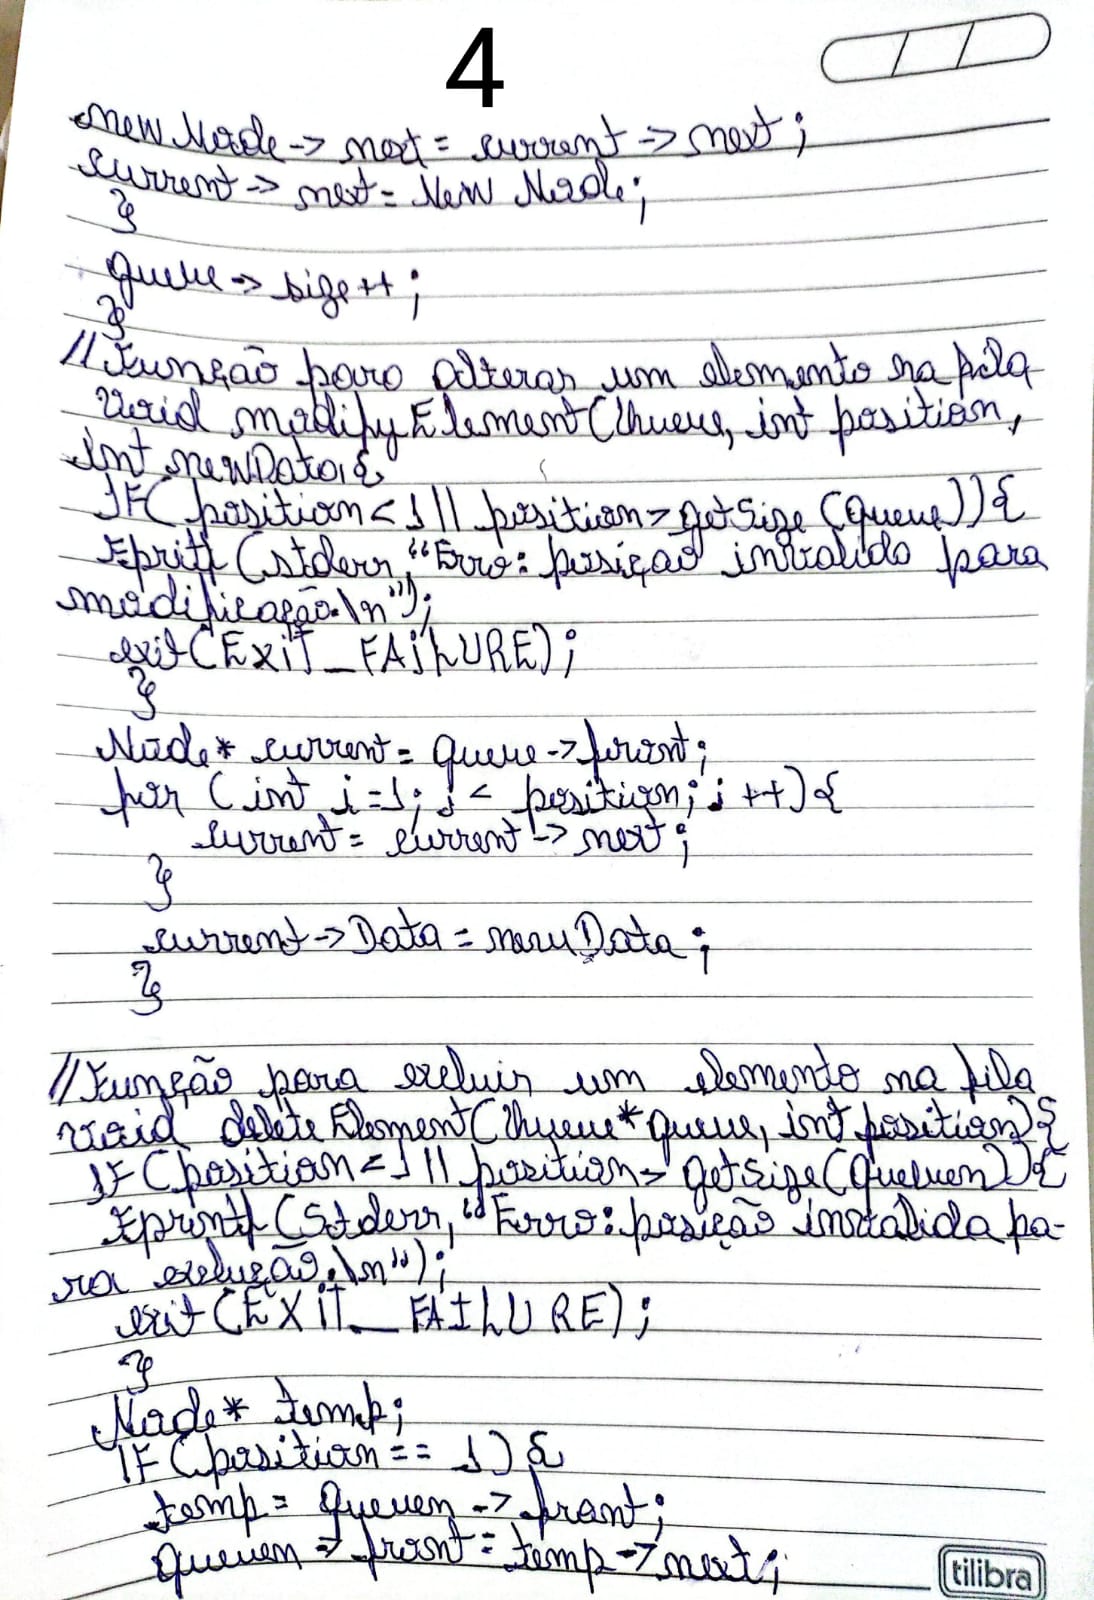 4
newNode -> next = current -> next;
current -> next = New Node;
}
queue -> size ++;
}
//Função para alterar um elemento na fila
void modifyElement(Queue, int position,
int newData,{
IF( position < 1 || position > getSize (queue)){
Fpritf (stderr, "Erro: posição invalida para
modificação.\n");
exit(EXIT_FAILURE);
}
Node* current = queue -> front;
for (int i = 1; i < position; i ++){
current = current -> next;
}
current -> Data = newData;
}
//Função para excluir um elemento na fila
void deleteElement(Queue* queue, int position){
IF (position < 1 || position > getSize(queuen)){
Fprintf (Stderr, "Erro: posição inválida pa-
ra exclução.\n");
exit(EXIT_FAILURE);
}
Node* temp;
IF (position == 1) {
temp = queuen -> front;
queuen -> front = temp -> next;
tilibra